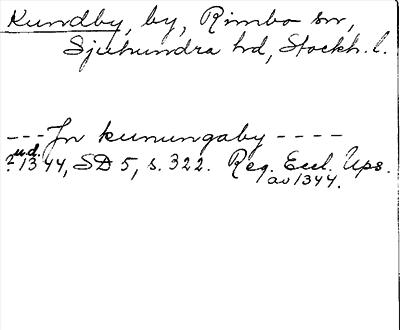 Kundby, by, Rimbo sn,
Sjuhundra hd, Stockh. l.
---Jn kunungaby----
u.d.
?1344, SD 5, s. 322. Reg. Eccl. Ups.
av 1344.